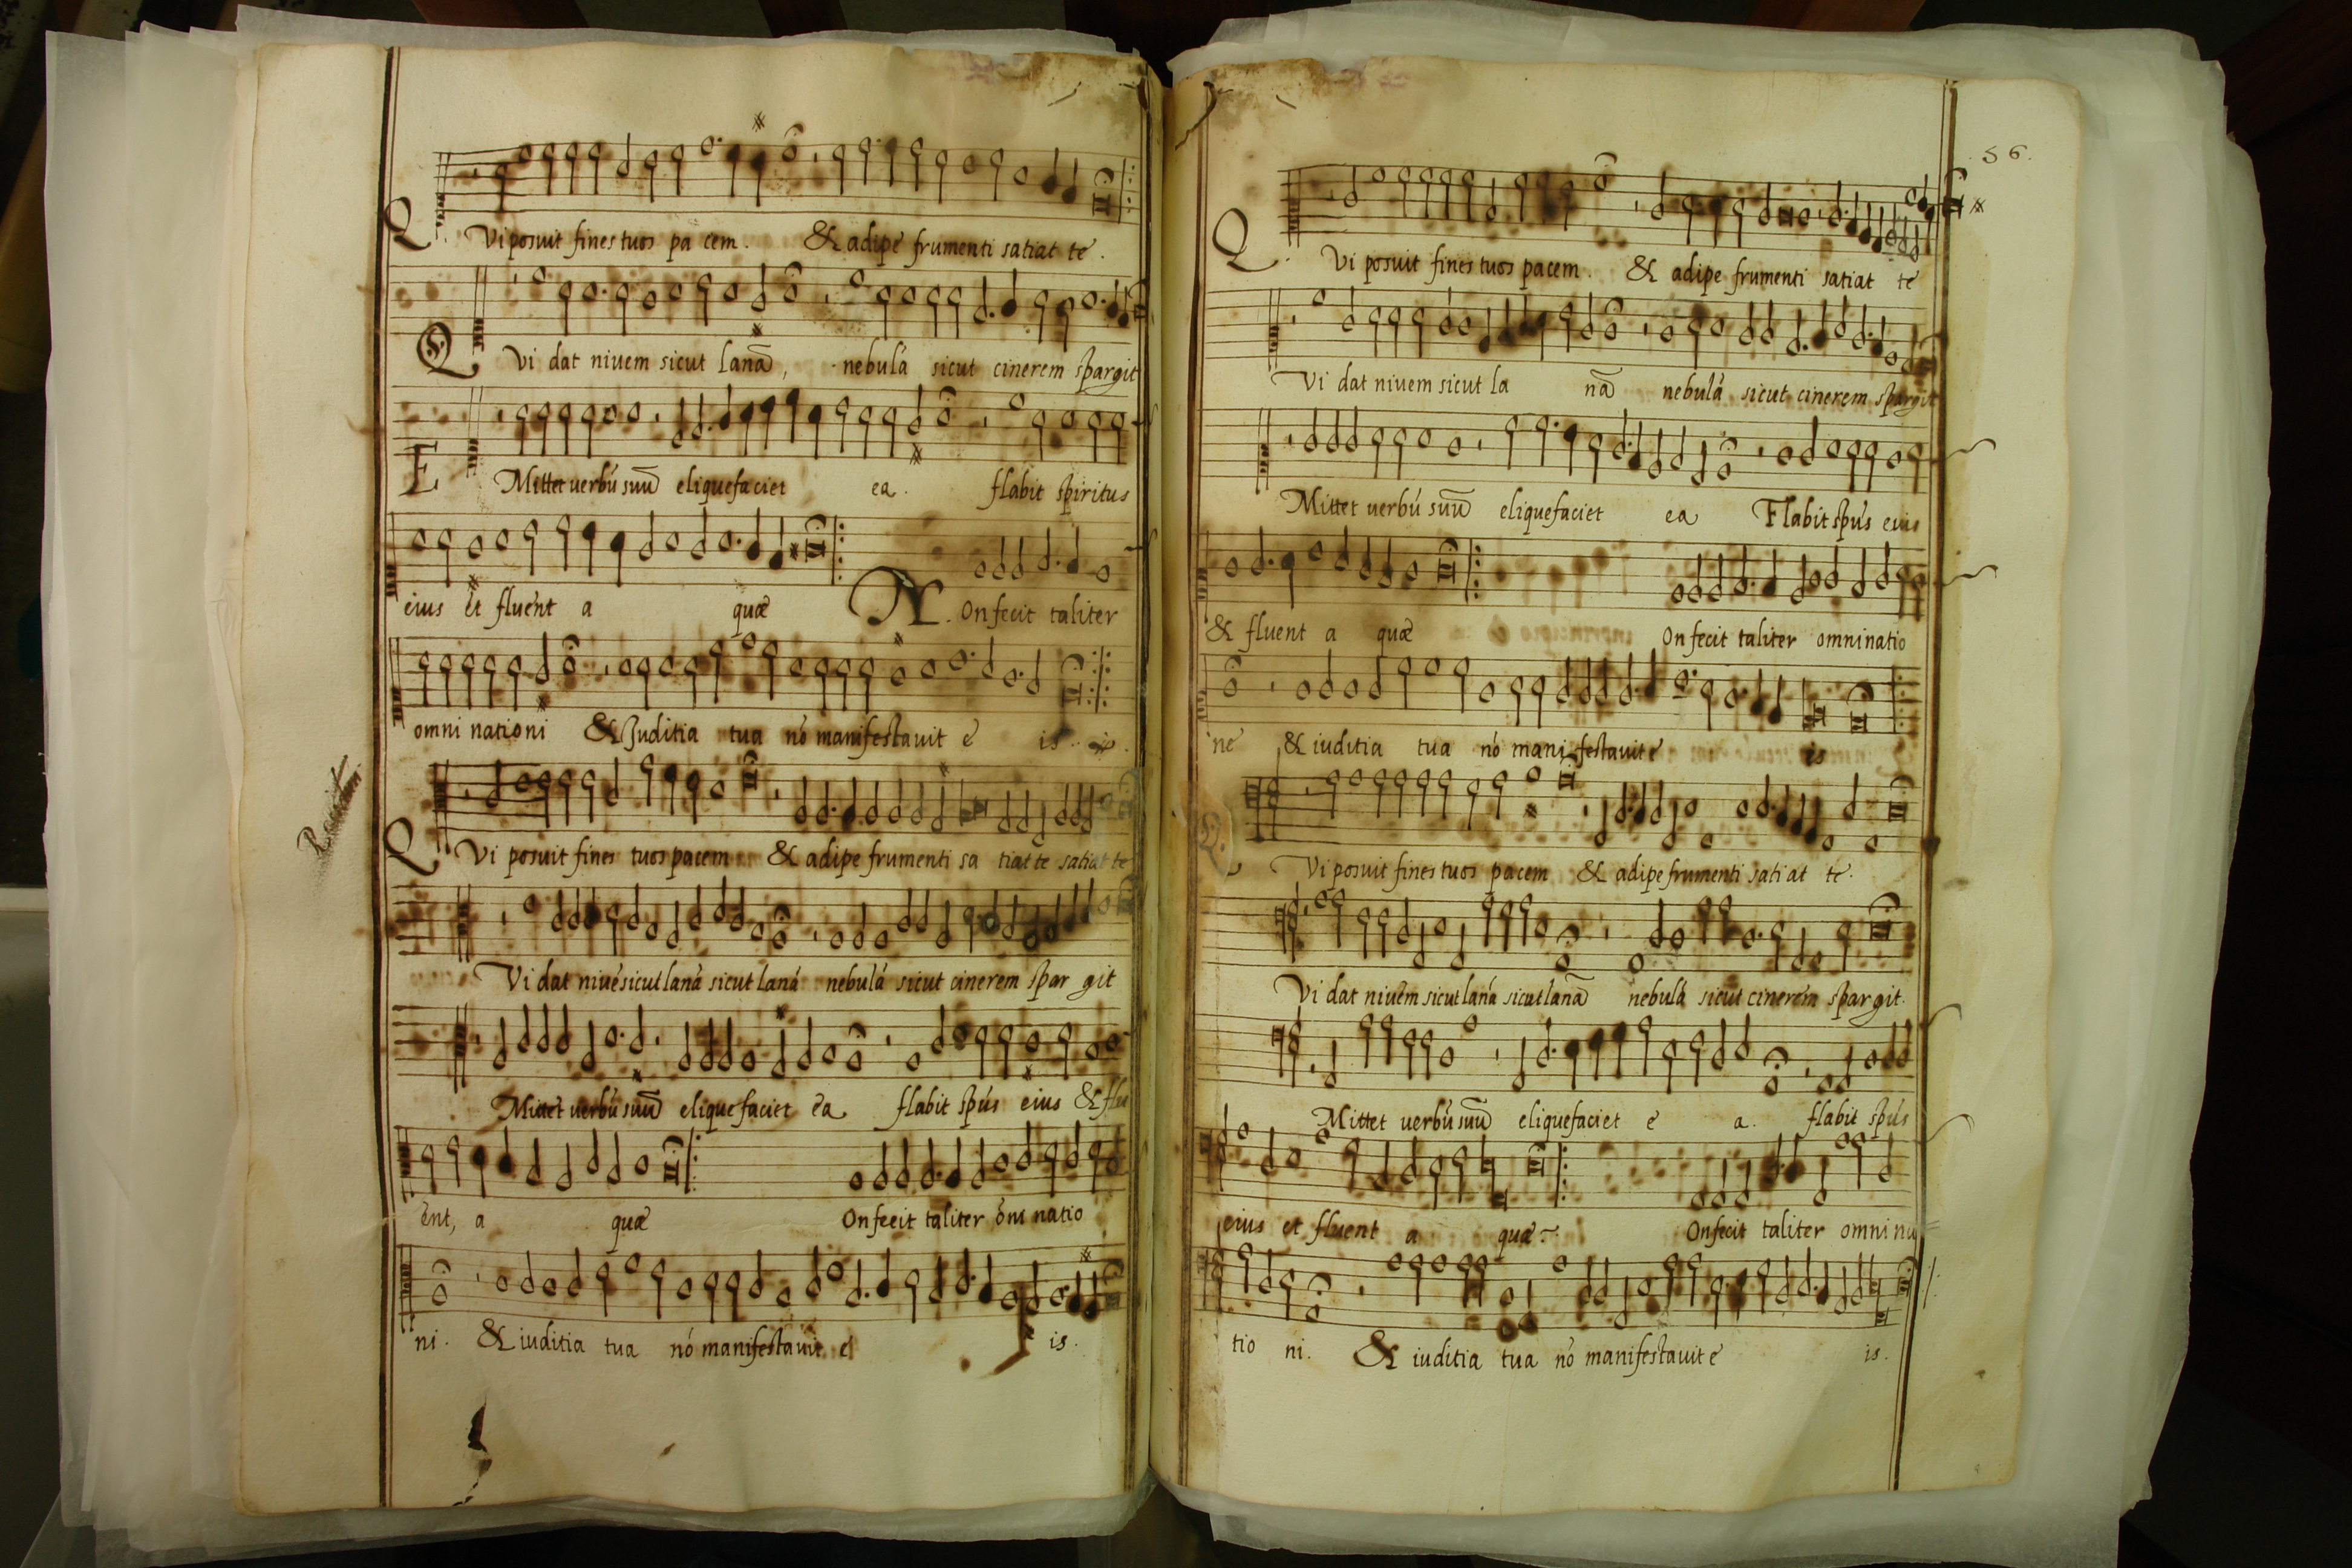 Qvi posuit fines tuos pa cem. & adipe frumenti satiat te.
Qvi dat niuem sicut lanā, nebulá sicut cinerem spargit
EMittet uerbú suū eliquefaciet ea. flabit spiritus
eius et fluent a quæ N.On fecit taliter
omni nationi & Juditia tua nó manifestauit e is
Qvi posuit fines tuos pacem & adipe frumenti sa tiat te satiat te
Vi dat niué sicut laná sicut laná nebulá sicut cinerem spar git
Mittet uerbú suū eliquefaciet ea flabit spús eius & flu
ent, a quæ On fecit taliter óni natio
ni. & iuditia tua nó manifestauit e is.
56.
Qvi posuit fines tuos pacem. & adipe frumenti satiat te
Vi dat niuem sicut la nā nebulá sicut cinerem spargit
Mittet uerbú suū eliquefaciet ea Flabit spús eius
& fluent a quæ On fecit taliter omni natio
ne & iuditia tua nó manifestauit e is
Q.Vi posuit fines tuos pacem & adipe frumenti satiat te.
Vi dat niuem sicut laná sicut lanā nebulá sicut cinerem spargit.
Mittet uerbú suū eliquefaciet e a. flabit spús
eius et fluent a quæ On fecit taliter omni na
tio ni. & iuditia tua nó manifestauit e is.